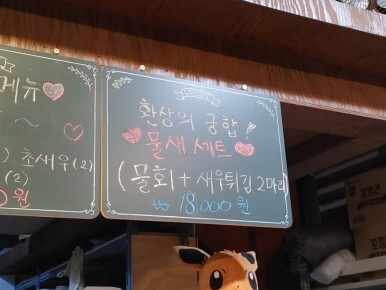 메뉴
~
초새우(2)
(2)
0원
환상의 궁합!
물새 세트
(물회 + 새우튀김 2마리)
₩ 18,000원